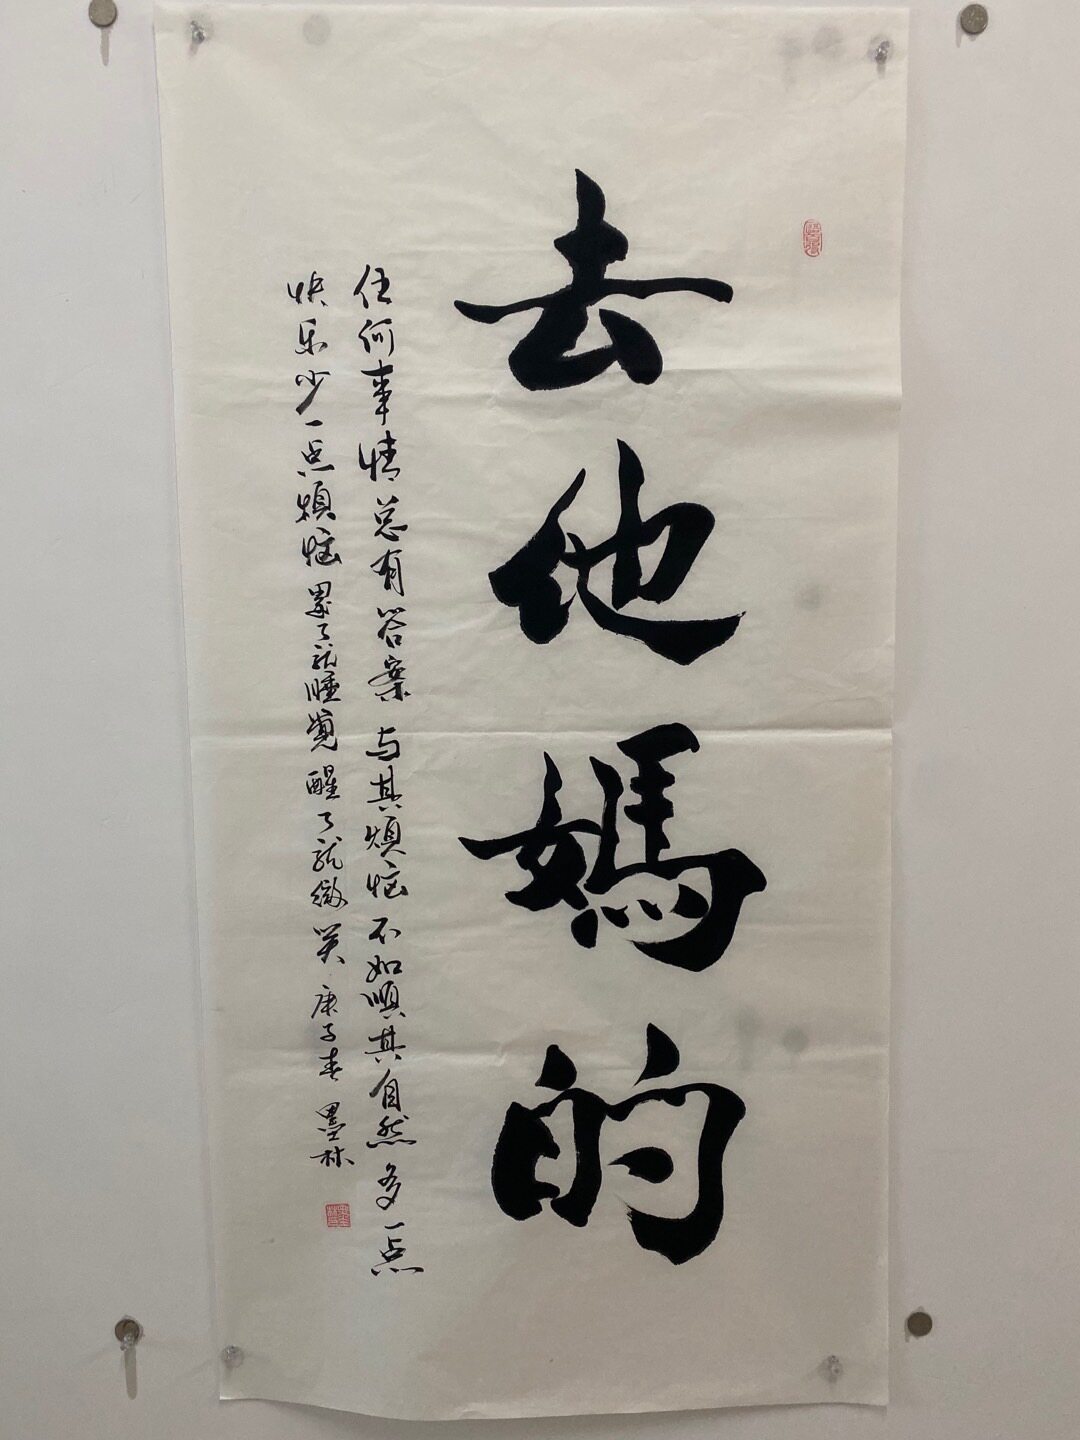 去他媽的
任何事情总有答案与其烦恼不如順其自然多一点
快乐少一点烦恼累了就睡觉醒了就微笑庚子春墨林